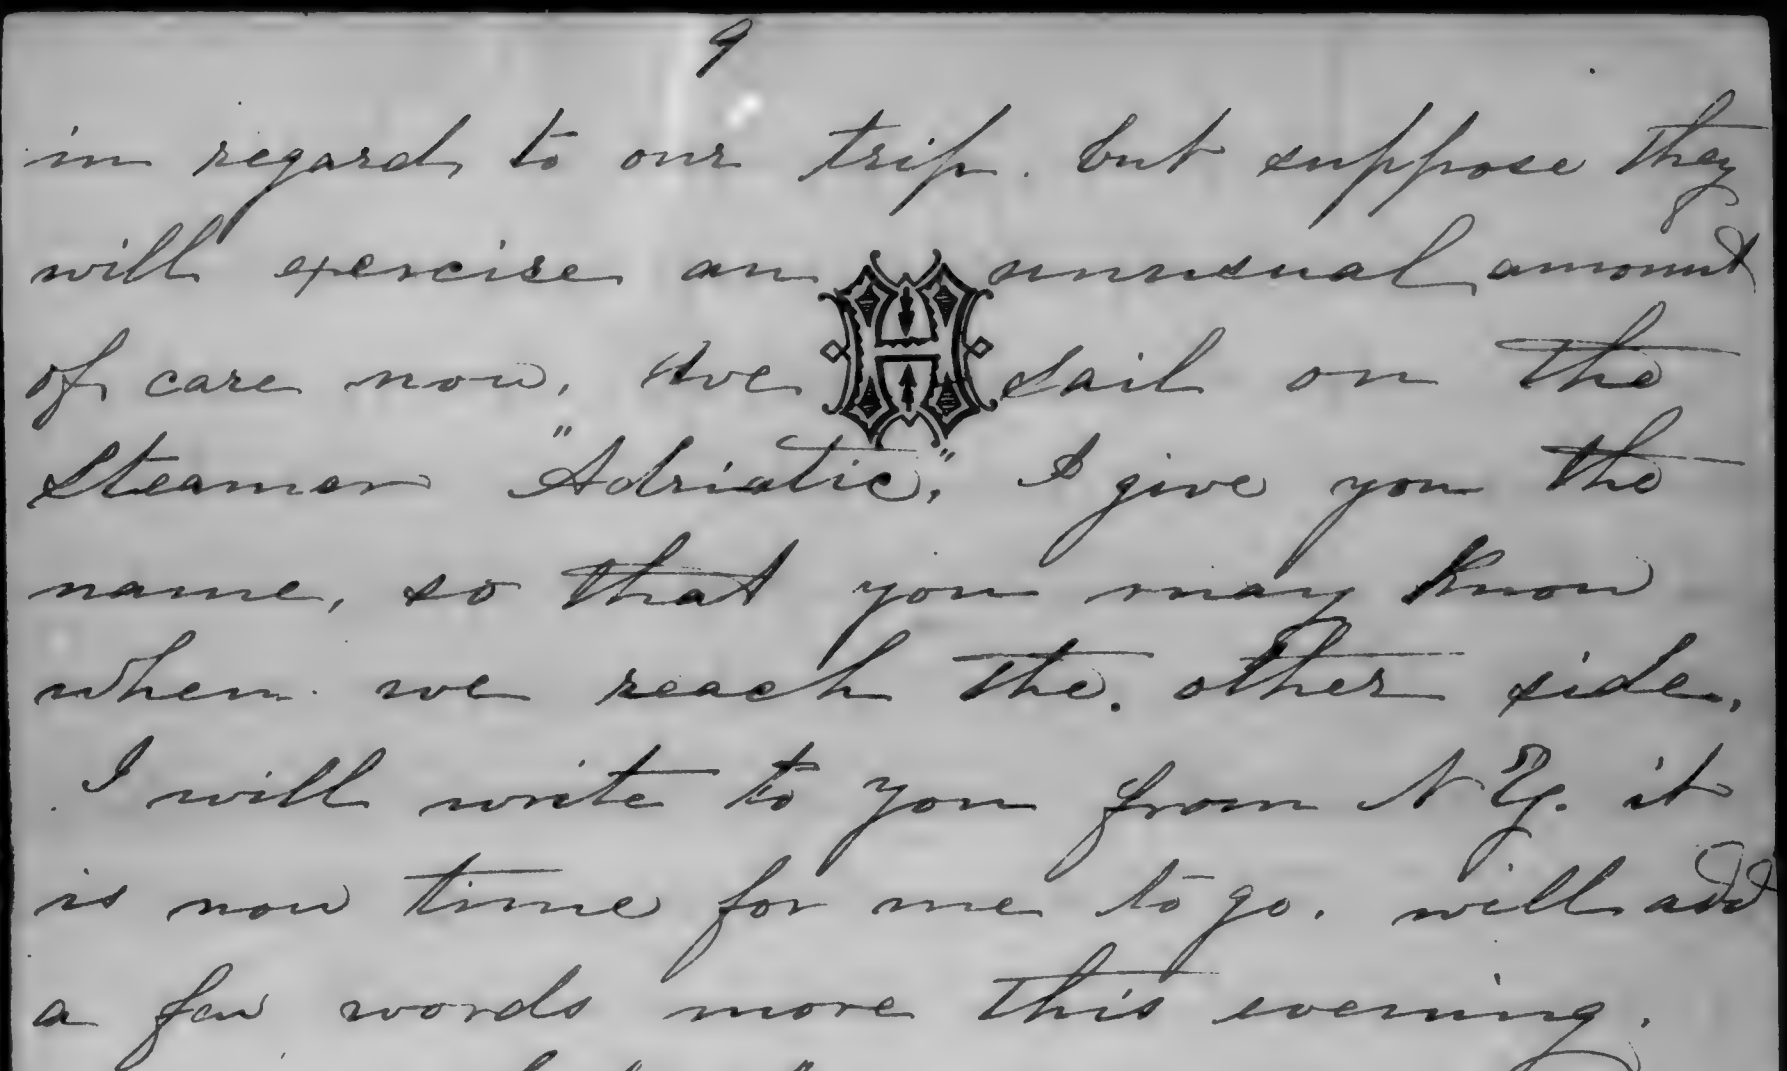 9
in regard to our trip. but suppose they
will exercise an unusual amount
of care now, We sail on the
Steamer "Adriatic," I give you the
name, so that you may know
when we reach the. other side.
I will write to you from N Y. it
is now time for me to go. will add
a few words more this evening.